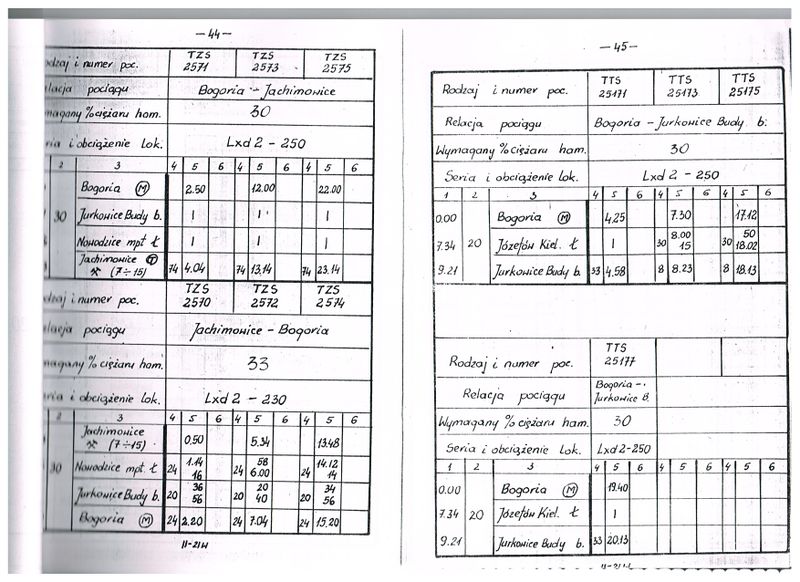 — 44 —
TZS TZS TZS
odzaj i numer poc. 2571 2573 2575
elacja pociągu Bogoria - Jachimowice
magany % ciężaru ham. 30
ria i obciążenie lok. Lxd 2 - 250
2 3 4 5 6 4 5 6 4 5 6
Bogoria M 2.50 12.00 22.00
30 Jurkowice Budy b. | | |
Nowodzice mpł ł | | |
Jachimowice T
⚒ (7÷15) 74 4.04 74 13.14 74 23.14
TZS TZS TZS
odzaj i numer poc. 2570 2572 2574
elacja pociągu Jachimowice - Bogoria
magany % ciężaru ham. 33
ria i obciążenie lok. Lxd 2 - 230
2 3 4 5 6 4 5 6 4 5 6
Jachimowice
⚒ (7÷15) 0.50 5.34 13.48
1.14 58 14.12
30 Nowodzice mpł ł 24 16 24 6.00 24 14
36 20 34
Jurkowice Budy b. 20 56 20 40 20 56
Bogoria M 24 2.20 24 7.04 24 15.20
— 45 —
TTS TTS TTS
Rodzaj i numer poc. 25171 25173 25175
Relacja pociągu Bogoria - Jurkowice Budy b.
Wymagany % ciężaru ham. 30
Seria i obciążenie lok. Lxd 2 - 250
1 2 3 4 5 6 4 5 6 4 5 6
0.00 Bogoria M 4.25 7.30 17.12
8.00 50
7.34 20 Józefów Kiel. ł | 30 15 30 18.02
9.21 Jurkowice Budy b. 33 4.58 8 8.23 8 18.13
TTS
Rodzaj i numer poc. 25177
Relacja pociągu Bogoria -
Jurkowice B.
Wymagany % ciężaru ham. 30
Seria i obciążenie lok. Lxd 2-250
1 2 3 4 5 6 4 5 6 4 5 6
0.00 Bogoria M 19.40
7.34 20 Józefów Kiel. ł |
9.21 Jurkowice Budy b. 33 20.13